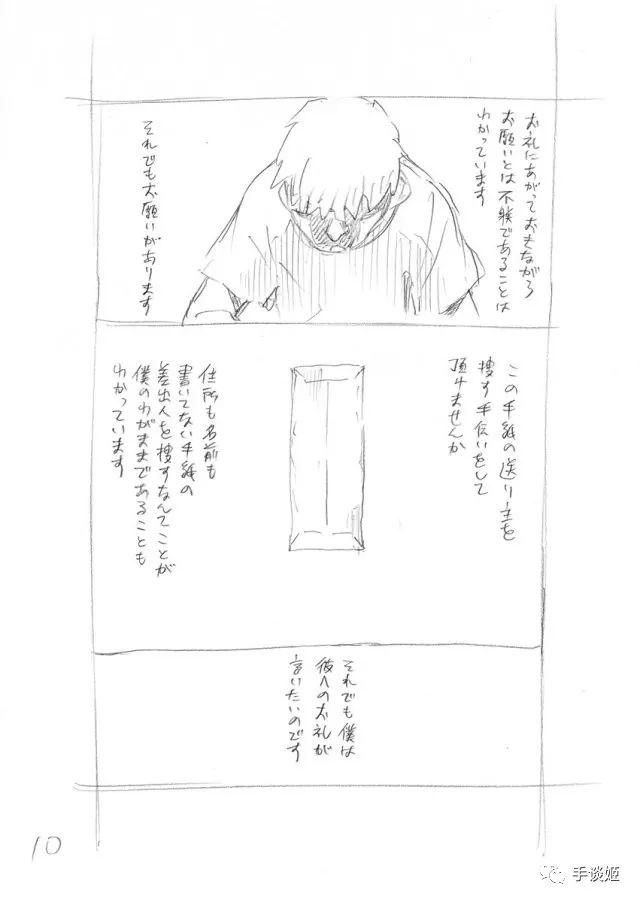 お礼にあがっておきながら
お願いとは不躾であることは
わかっています
それでもお願いがあります
この手紙の送り主を
捜す手伝いをして
頂けませんか
住所も名前も
書いてない手紙の
差出人を捜すなんてことが
僕のわがままであることも
わかっています
それでも僕は
彼へのお礼が
言いたいのです
10
手谈姬